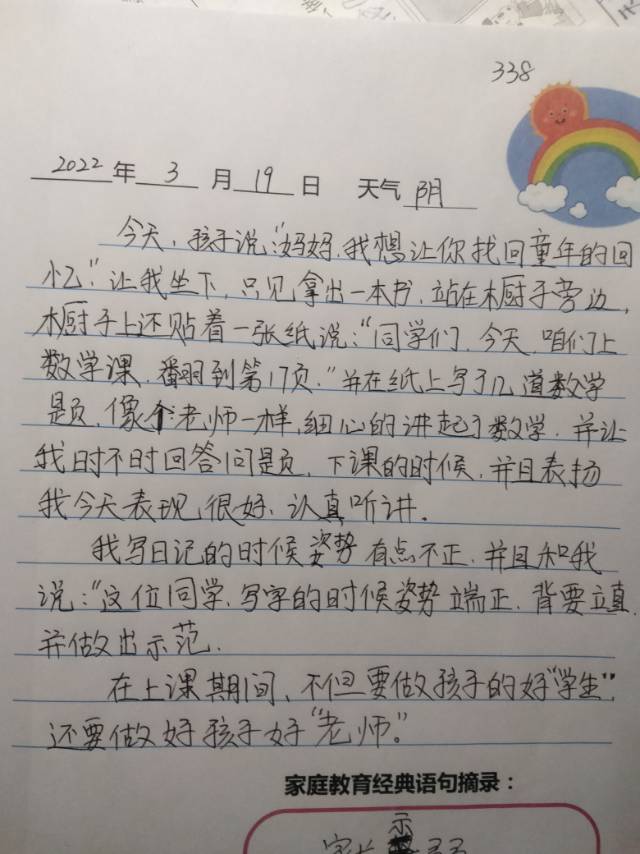 338
2022年 3 月 19 日 天气 阴
今天，孩子说："妈妈，我想让你找回童年的回
忆"。让我坐下，只见拿出一本书，站在木厨子旁边，
木厨子上还贴着一张纸说："同学们，今天，咱们上
数学课，翻到第17页，"并在纸上写了几道数学
题，像个老师一样，细心的讲起了数学，并让
我时不时回答问题，下课的时候，并且表扬
我今天表现很好，认真听讲。
我写日记的时候姿势有点不正，并且和我
说："这位同学，写字的时候姿势端正，背要立直，
并做出示范.
在上课期间，不但要做孩子的好"学生"，
还要做好孩子好"老师。"
家庭教育经典语句摘录：
示
家长